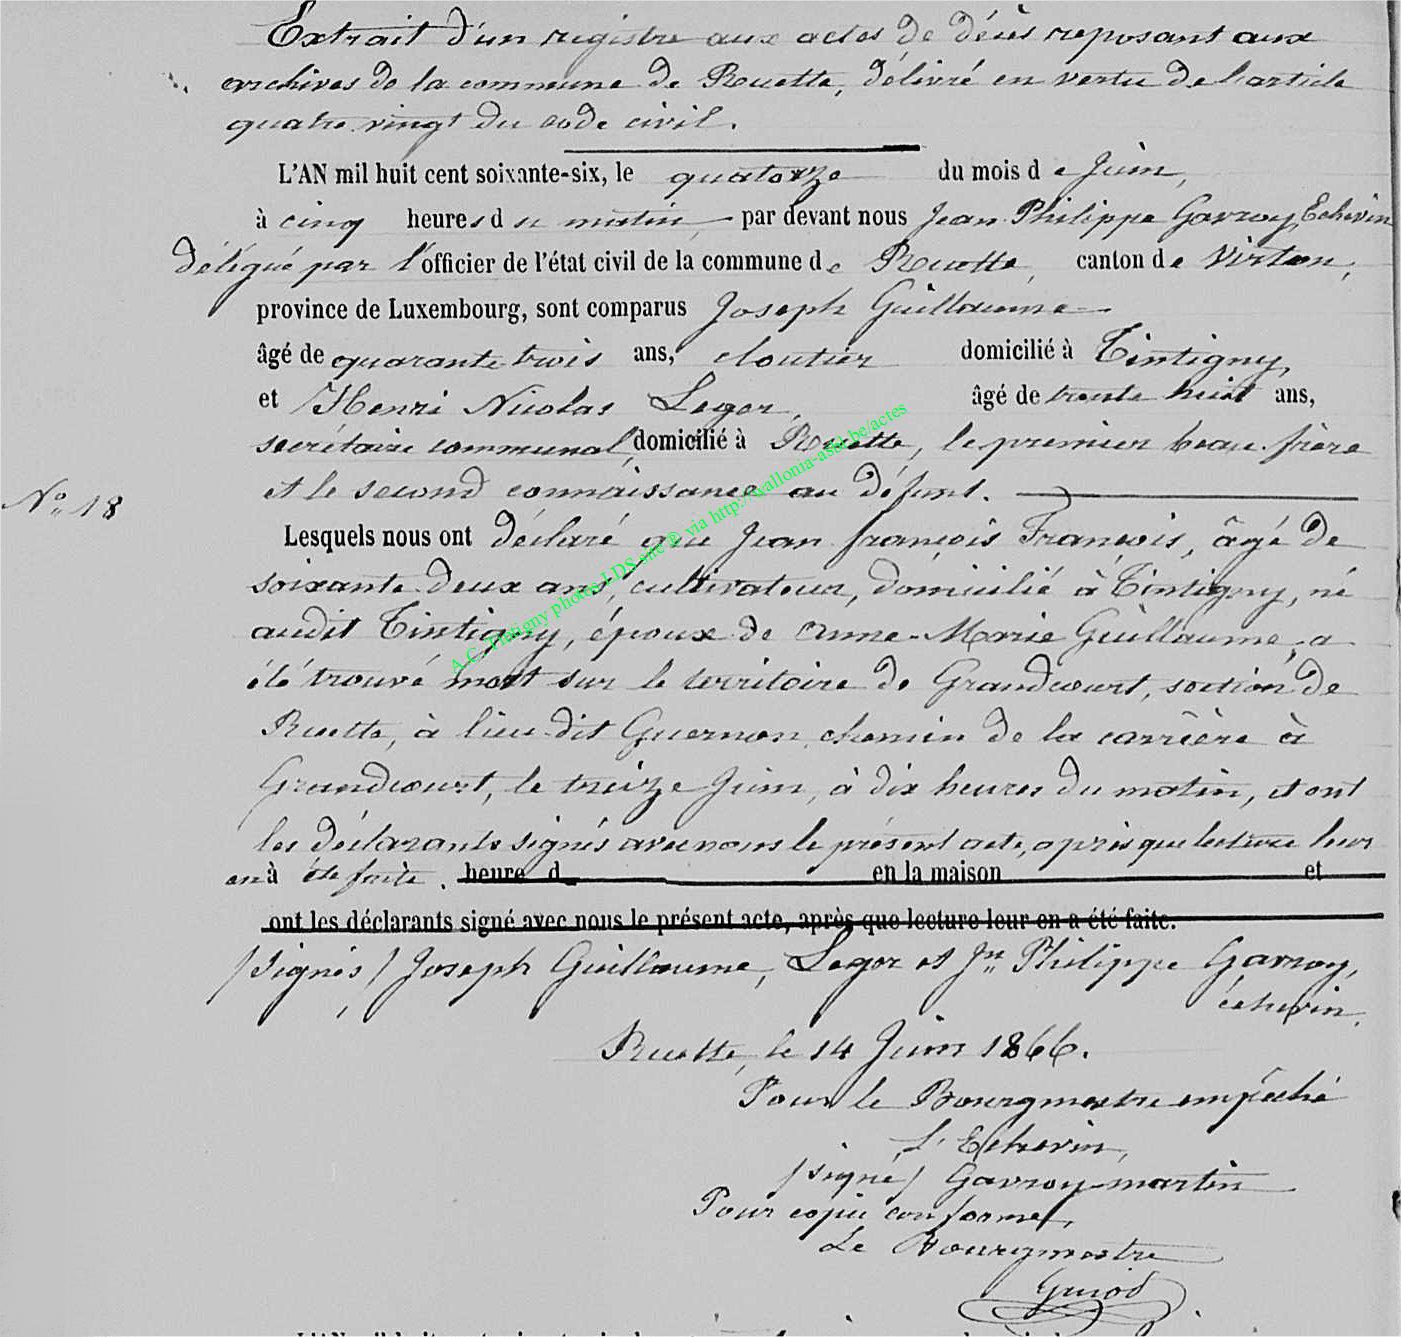 Extrait d'un registre aux actes de décès reposant aux
archives de la commune de Ruette, délivré en vertu de l'article
quatre vingt du code civil.
L'AN mil huit cent soixante-six, le quatorze du mois de Juin,
à cinq heures du matin par devant nous Jean Philippe Gavroy, Echevin
délégué par l'officier de l'état civil de la commune de Ruette, canton de Virton,
province de Luxembourg, sont comparus Joseph Guillaume
âgé de quarante trois ans, cloutier domicilié à Tintigny,
et Henri Nicolas Leger, âgé de trente huit ans,
secrétaire communal, domicilié à Ruette, le premier beau-frère
et le second connaissance au défunt.
N° 18
Lesquels nous ont déclaré que Jean françois François, âgé de
soixante deux ans, cultivateur, domicilié à Tintigny, né
audit Tintigny, époux de Anne-Marie Guillaume, a
été trouvé mort sur le territoire de Grandcourt, section de
Ruette, à lieu-dit Guernon, chemin de la carrière à
Grandcourt, le treize Juin, à dix heures du matin, et ont
les déclarants signés avec nous le présent acte, après que lecture leur
en à été faite. heure d en la maison et
ont les déclarants signé avec nous le présent acte, après que lecture leur en a été faite.
/Signés/ Joseph Guillaume, Leger et Jn Philippe Gavroy,
échevin.
Ruette, le 14 Juin 1866.
Pour le Bourgmestre empêché
L'Echevin,
/signé/ Gavroy-martin
Pour copie conforme,
Le Bourgmestre
Guiod
A.C. Tintigny photos LDS site © via http://wallonia-asbl.be/actes